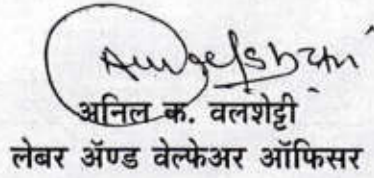 अनिल क. वलशेट्टी
लेबर ॲण्ड वेल्फेअर ऑफिसर